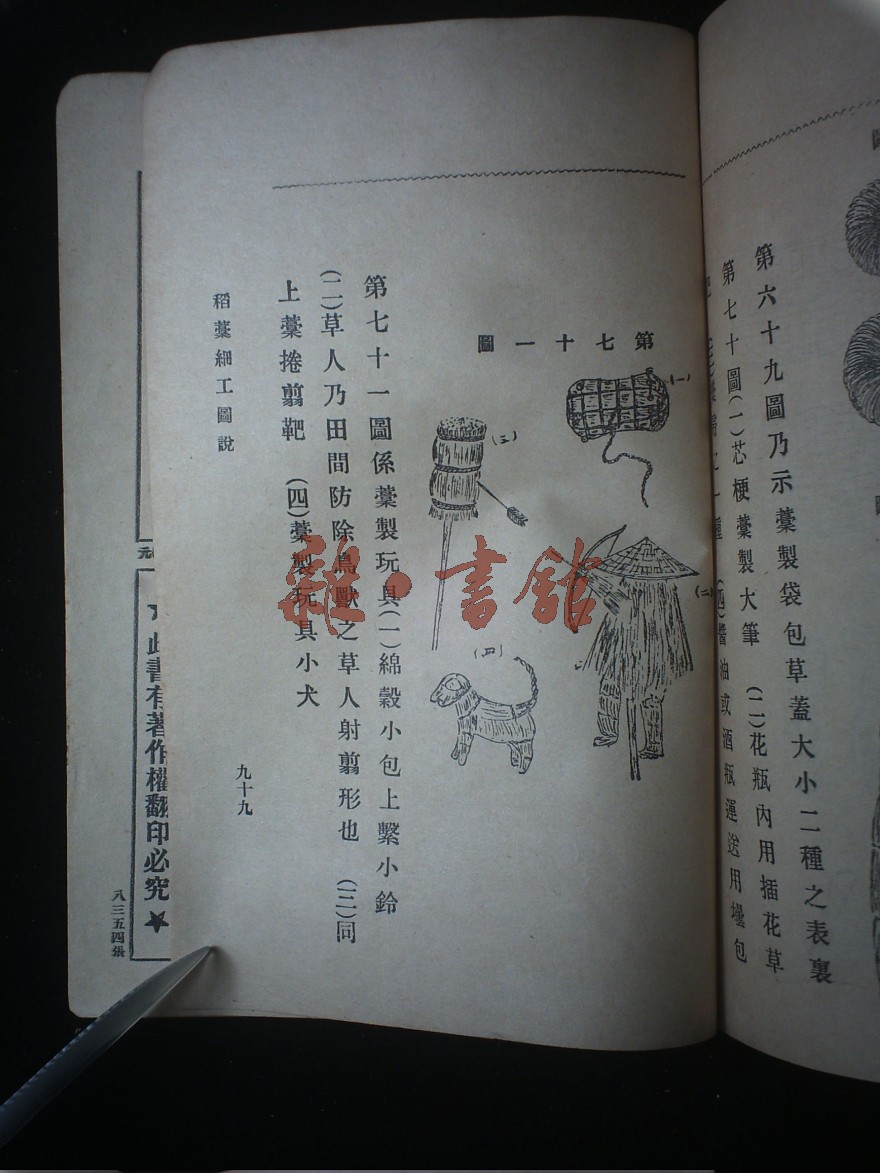 第六十九圖乃示藁製袋包草蓋大小二種之表裏
第七十圖(一)芯梗藁製大筆 (二)花瓶內用插花草
之一種 (四)醬油或酒瓶運送用壜包
第七十一圖
(一)
(二)
(三)
(四)
第七十一圖係藁製玩具(一)綿穀小包上繫小鈴
(二)草人乃田間防除鳥獸之草人射翦形也 (三)同
上藁捲翦靶 (四)藁製玩具小犬
稻藁細工圖說
九十九
元
★此書有著作權翻印必究★
八三五四張
雜·書館